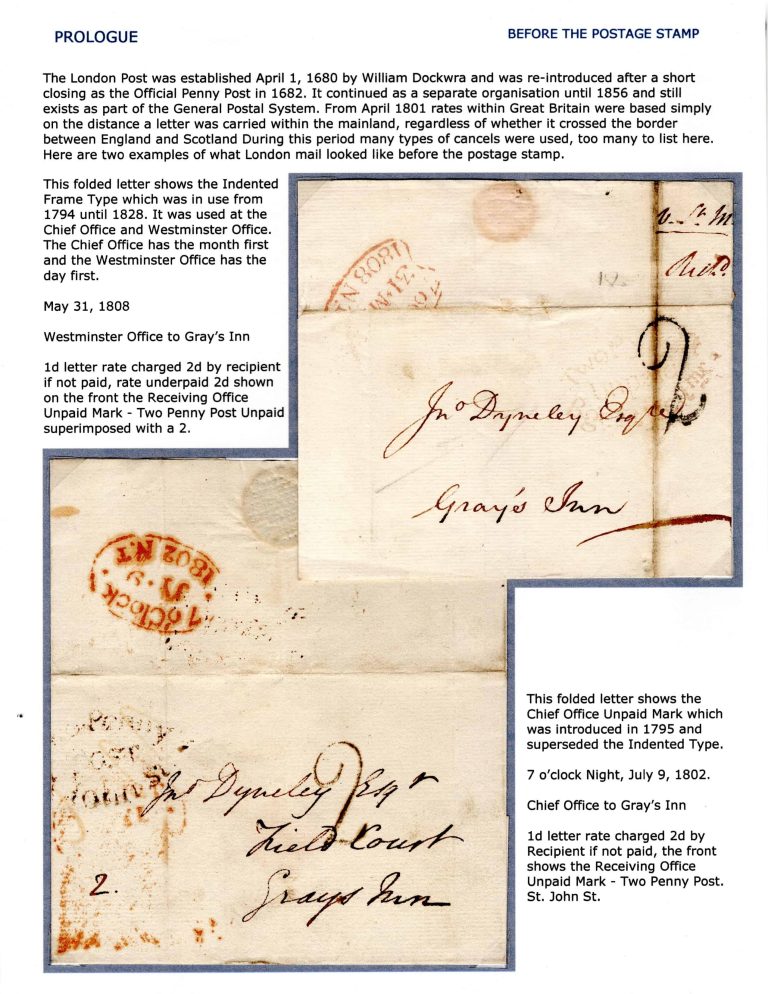 PROLOGUE
BEFORE THE POSTAGE STAMP
The London Post was established April 1, 1680 by William Dockwra and was re-introduced after a short
closing as the Official Penny Post in 1682. It continued as a separate organisation until 1856 and still
exists as part of the General Postal System. From April 1801 rates within Great Britain were based simply
on the distance a letter was carried within the mainland, regardless of whether it crossed the border
between England and Scotland During this period many types of cancels were used, too many to list here.
Here are two examples of what London mail looked like before the postage stamp.
This folded letter shows the Indented
Frame Type which was in use from
1794 until 1828. It was used at the
Chief Office and Westminster Office.
The Chief Office has the month first
and the Westminster Office has the
day first.
May 31, 1808
Westminster Office to Gray's Inn
1d letter rate charged 2d by recipient
if not paid, rate underpaid 2d shown
on the front the Receiving Office
Unpaid Mark - Two Penny Post Unpaid
superimposed with a 2.
1808
31
2
Jno Dyneley Esqre
Gray's Inn
1802 N.T
JY 9
7 oClock
Penny
Post
John St
Jno Dyneley Esqr
Field Court
Grays Inn
2.
This folded letter shows the
Chief Office Unpaid Mark which
was introduced in 1795 and
superseded the Indented Type.
7 o'clock Night, July 9, 1802.
Chief Office to Gray's Inn
1d letter rate charged 2d by
Recipient if not paid, the front
shows the Receiving Office
Unpaid Mark - Two Penny Post.
St. John St.